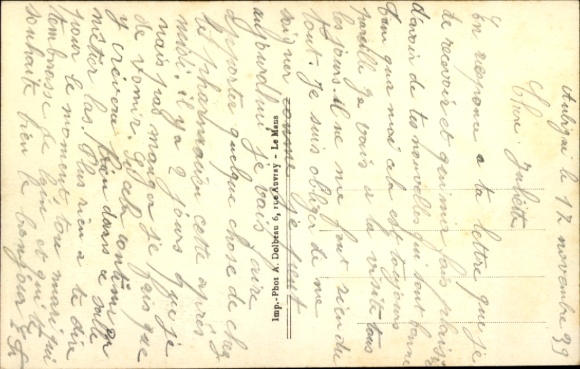 Aubigné le 17 novembre 39
Chère Juliette
En réponse a ta lettre que je
de recevoir et qui ma fais plaisir
d'avoir de tes nouvelles qui sont bonne
tant que moi cela est toujours
pareille je vais a la visite tous
les jours il ne me font rien du
tout. Je suis obliger de me
soigner comme je peut
aujourd'hui je vais faire
apporter quelque chose de chez
le pharmacien cette après
midi. il y a 2 jours que je
nais pas manger je fais que
de vomir. Si cela continu on
y crevera bien dans ce
métier las. Plus rien a te dire
pour le moment ton mari qui
t'embrasse de loin et qui te
souhaite bien le bonjour
Imp.-Phot A. Dolbeau 6, rue Auvray - Le Mans